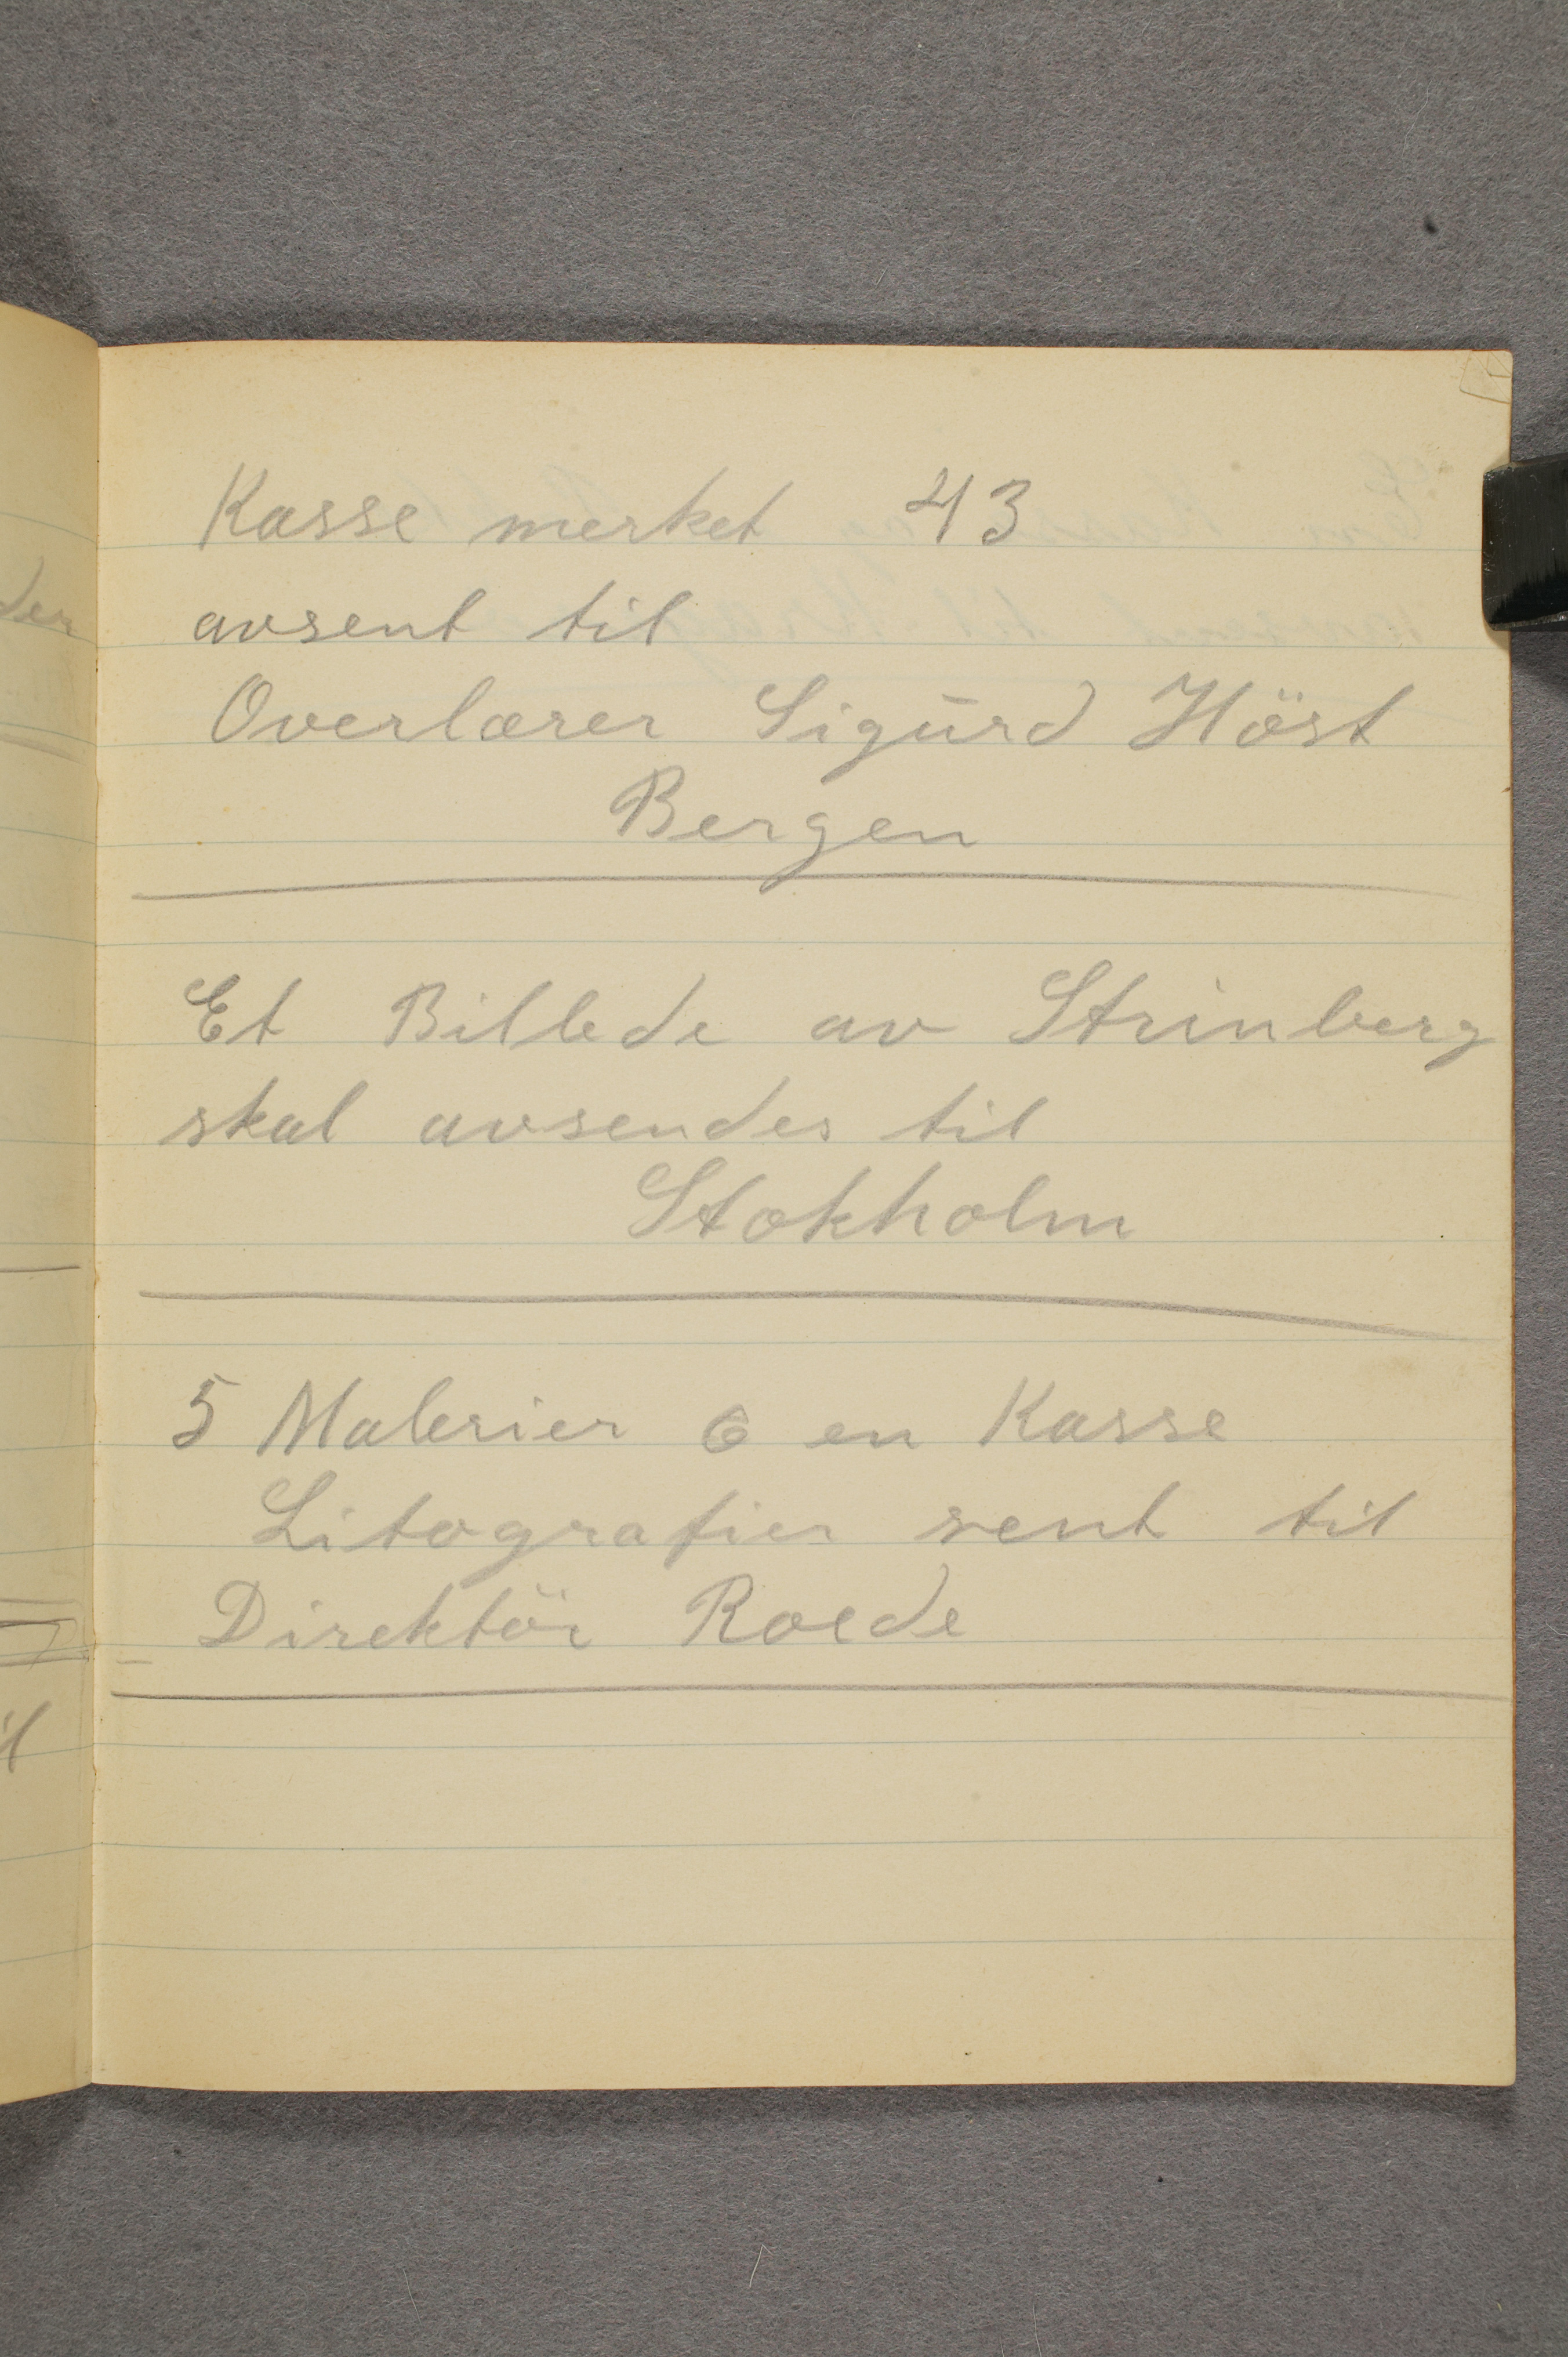 Kasse merket 43
avsent til
Overlærer Sigūrd Höst
Bergen
Et Billede av Strinberg
skal avsendes til
Stokholm
5 Malerier 6 en Kasse
Litografier sent til
Direktör Roede